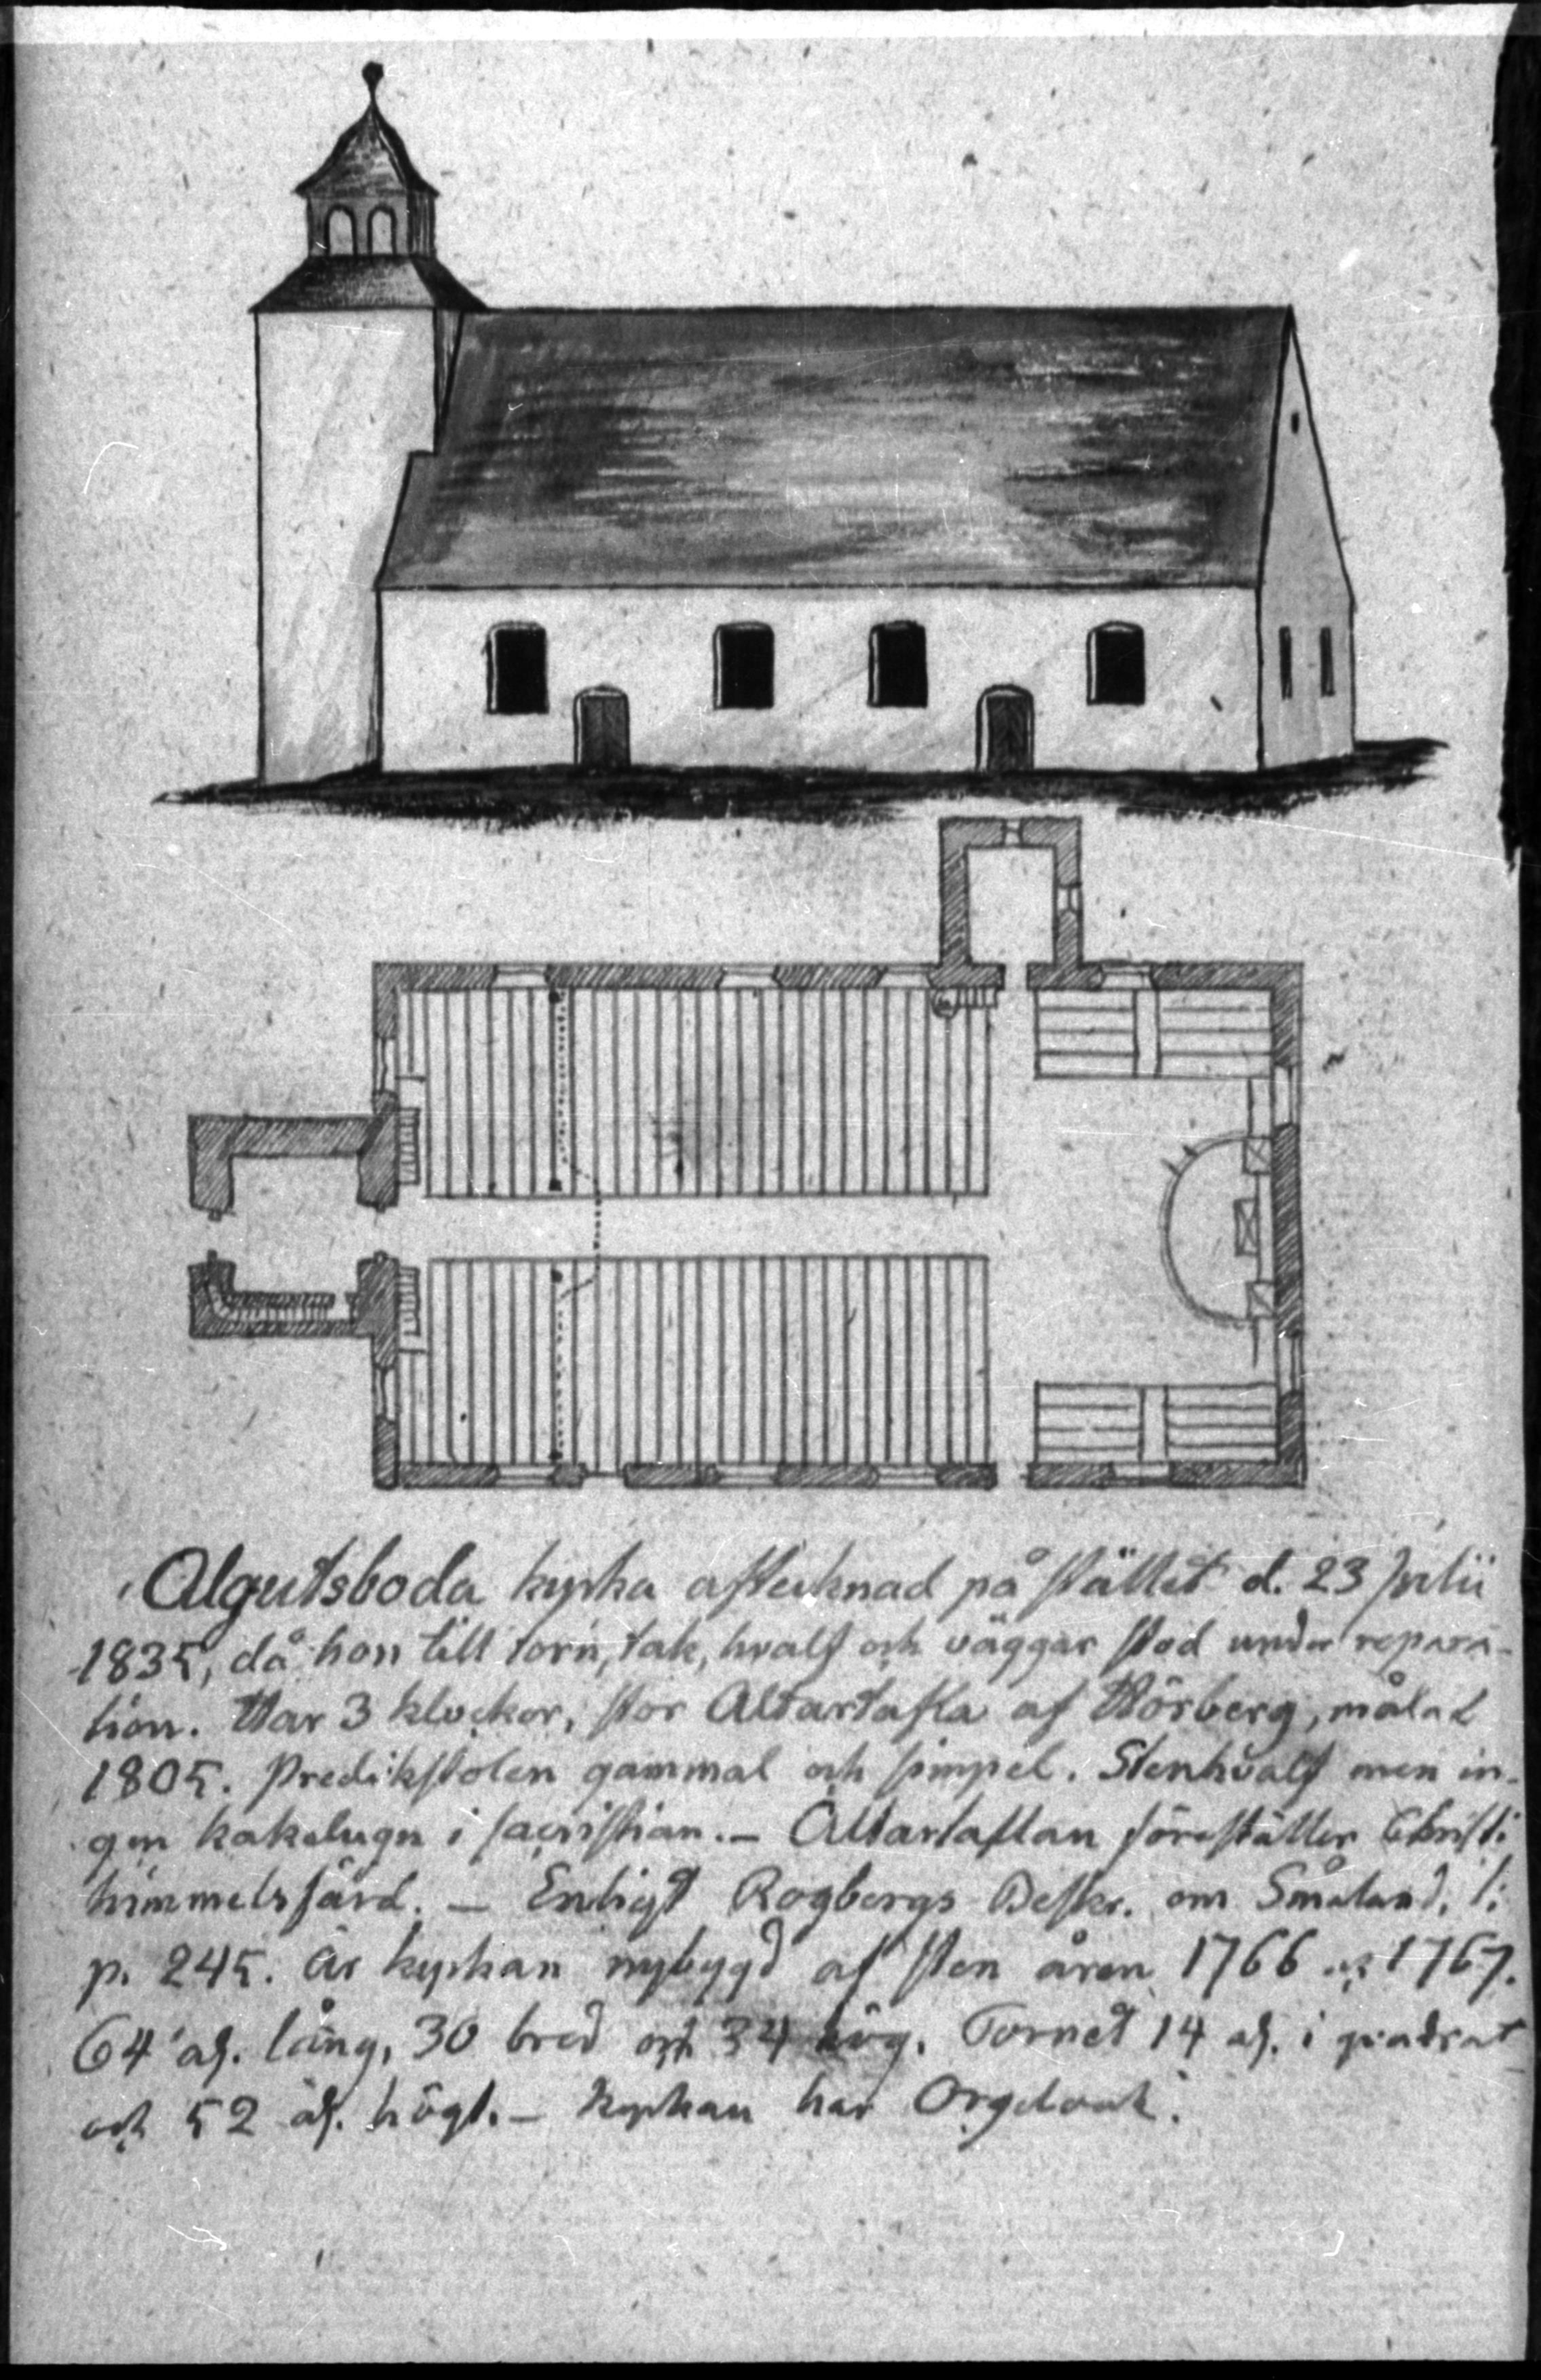 Algutsboda kyrka aftecknad på stället d. 23 Julii
1835, då hon till torn, tak, hvalf och väggar stod under repara-
tion. Har 3 klockor, stor Altartafla af Hörberg, målad
1805. Predikstolen gammal och simpel. Stenhvalf men in-
gen kakelugn i sacristian. – Altartaflan föreställer Christi
himmelsfärd. – Enligt Rogbergs Beskr. om Småland,
p. 245. är kyrkan nybygd af sten åren 1766 och 1767.
64 al. lång, 30 bred och 34 hög. Tornet 14 al. i quadrat
och 52 al. högt. – Kyrkan har Orgelverk.